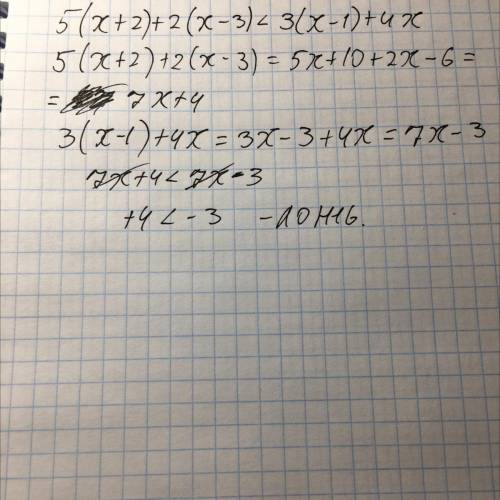 5(x+2)+2(x-3)<3(x-1)+4x
5(x+2)+2(x-3)=5x+10+2x-6=
= 7x+4
3(x-1)+4x=3x-3+4x=7x-3
7x+4<7x-3
+4<-3